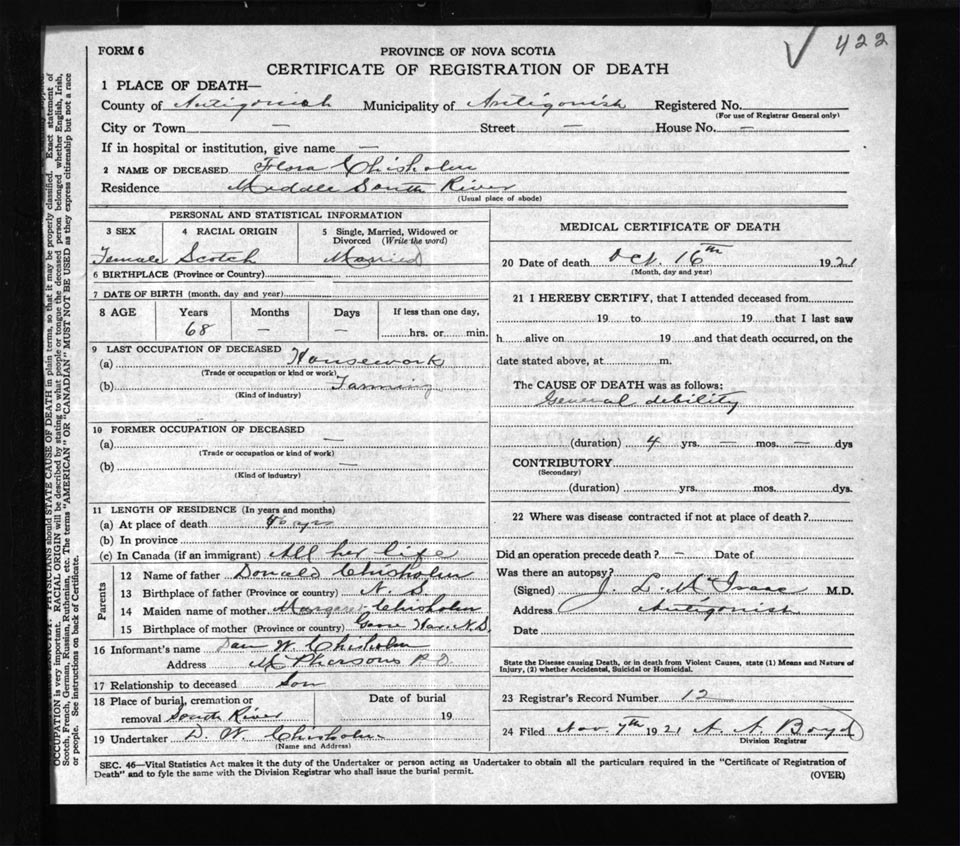 422
FORM 6
PROVINCE OF NOVA SCOTIA
CERTIFICATE OF REGISTRATION OF DEATH
1 PLACE OF DEATH—
County of Antigonish Municipality of Antigonish Registered No.
(For use of Registrar General only)
City or Town — Street — House No. —
If in hospital or institution, give name —
2 NAME OF DECEASED Flora Chisholm
Residence Middle South River
(Usual place of abode)
PERSONAL AND STATISTICAL INFORMATION
3 SEX 4 RACIAL ORIGIN 5 Single, Married, Widowed or Divorced (Write the word)
Female Scotch Married
6 BIRTHPLACE (Province or Country)
7 DATE OF BIRTH (month, day and year)
8 AGE Years Months Days If less than one day,
68 — — hrs. or min.
9 LAST OCCUPATION OF DECEASED
(a) Housework
(Trade or occupation or kind or work)
(b) Farming
(Kind of industry)
10 FORMER OCCUPATION OF DECEASED
(a) —
(Trade or occupation or kind of work)
(b) —
(Kind of industry)
11 LENGTH OF RESIDENCE (In years and months)
(a) At place of death 46 yrs
(b) In province
(c) In Canada (if an immigrant) All her life
Parents
12 Name of father Donald Chisholm
13 Birthplace of father (Province or country) N. S.
14 Maiden name of mother Margaret Chisholm
15 Birthplace of mother (Province or country) N.S.
16 Informant's name Dan W. Chisholm
Address McPhersons P.O.
17 Relationship to deceased Son
18 Place of burial, cremation or removal South River Date of burial 19
19 Undertaker D. W. Chisholm
(Name and Address)
MEDICAL CERTIFICATE OF DEATH
20 Date of death Oct. 16th 1921
(Month, day and year)
21 I HEREBY CERTIFY, that I attended deceased from
19 to 19 that I last saw
h alive on 19 and that death occurred, on the
date stated above, at m.
The CAUSE OF DEATH was as follows:
General debility
(duration) 4 yrs. — mos. — dys
CONTRIBUTORY
(Secondary)
(duration) yrs. mos. dys.
22 Where was disease contracted if not at place of death?
Did an operation precede death? — Date of
Was there an autopsy?
(Signed) J. L. McIsaac M.D.
Address Antigonish
Date
State the Disease causing Death, or in death from Violent Causes, state (1) Means and Nature of
Injury, (2) whether Accidental, Suicidal or Homicidal.
23 Registrar's Record Number 12
24 Filed Nov. 7th 1921 A. A. Boyd
Division Registrar
SEC. 46—Vital Statistics Act makes it the duty of the Undertaker or person acting as Undertaker to obtain all the particulars required in the "Certificate of Registration of
Death" and to fyle the same with the Division Registrar who shall issue the burial permit.
(OVER)
PHYSICIANS should STATE CAUSE OF DEATH in plain terms, so that it may be properly classified. Exact statement of
OCCUPATION is very important. RACIAL ORIGIN will be described by stating to what people or tongue the deceased person belonged whether English, Irish,
Scotch, French, German, Russian, Ruthenian, etc. The terms "AMERICAN" OR "CANADIAN" MUST NOT BE USED as they express citizenship but not a race
or people. See instructions on back of Certificate.